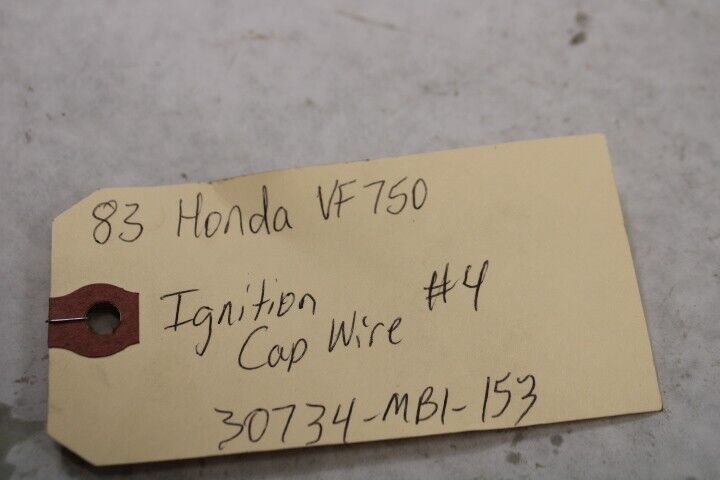 83 Honda VF750
Ignition #4
Cap Wire
30734-MB1-153